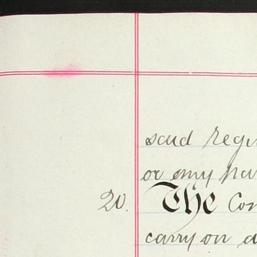 said regi
or any pa
20. The Con
carry on a